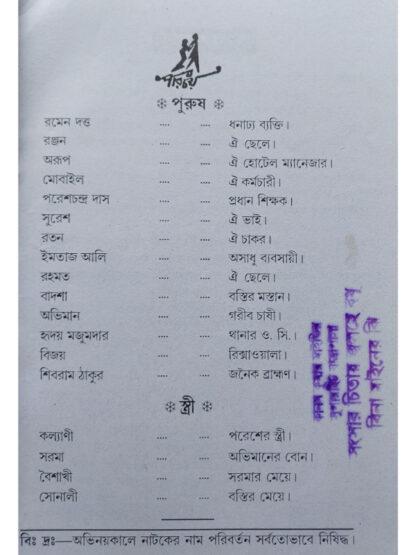 পরিচয়
পুরুষ
রমেন দত্ত .... .... ধনাঢ্য ব্যক্তি।
রঞ্জন .... .... ঐ ছেলে।
অরূপ .... .... ঐ হোটেল ম্যানেজার।
মোবাইল .... .... ঐ কর্মচারী।
পরেশচন্দ্র দাস .... .... প্রধান শিক্ষক।
সুরেশ .... .... ঐ ভাই।
রতন .... .... ঐ চাকর।
ইমতাজ আলি .... .... অসাধু ব্যবসায়ী।
রহমত .... .... ঐ ছেলে।
বাদশা .... .... বস্তির মস্তান।
অভিমান .... .... গরীব চাষী।
হৃদয় মজুমদার .... .... থানার ও. সি.।
বিজয় .... .... রিক্সাওয়ালা।
শিবরাম ঠাকুর .... .... জনৈক ব্রাহ্মণ।
স্ত্রী
কল্যাণী .... .... পরেশের স্ত্রী।
সরমা .... .... অভিমানের বোন।
বৈশাখী .... .... সরমার মেয়ে।
সোনালী .... .... বস্তির মেয়ে।
বিঃ দ্রঃ—অভিনয়কালে নাটকের নাম পরিবর্তন সর্বতোভাবে নিষিদ্ধ।
সংসার চিতায়
বিনা মাইনের ঝি